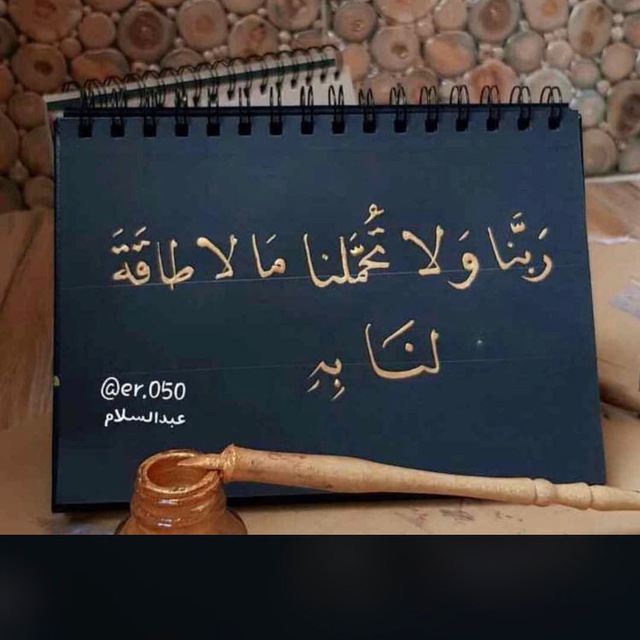 رَبَّنا وَلا تُحَمَّلنا مَا لا طاقَةَ
لنَا بِهِ
@er.050
عبدالسلام